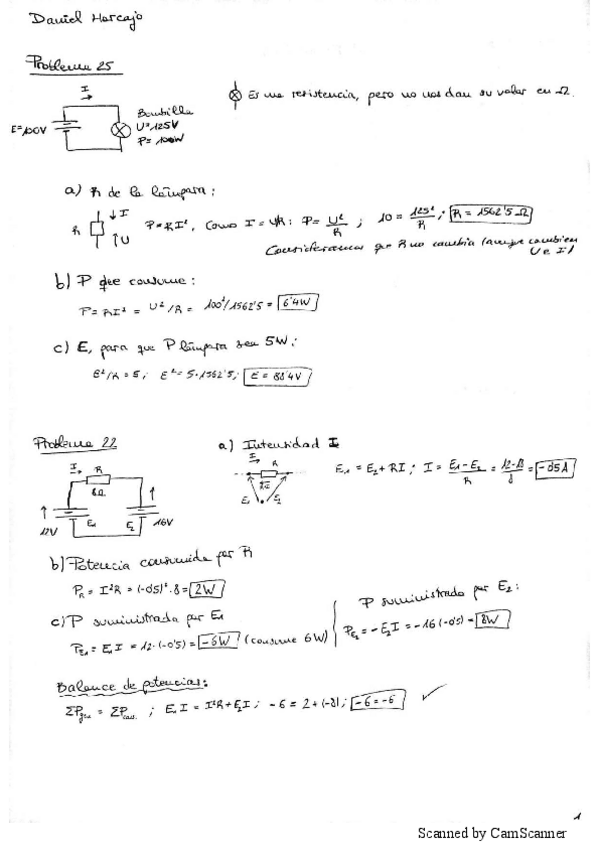 Daniel Horcajo
Problema 25
I
E=100V
Bombilla
U=125V
P=10W
Es una resistencia, pero no nos dan su valor en Ω.
a) R de la lámpara:
R
I
U
P=RI², como I=U/R: P=U²/R ; 10=125²/R ; R=1562'5Ω
Consideramos que R no cambia (aunque cambien U e I)
b) P que consume:
P=RI²=U²/R=100²/1562'5=6'4W
c) E, para que P lámpara sea 5W:
E²/R=5; E²=5·1562'5; E=88'4V
Problema 22
I
R
8Ω
12V
E₁
E₂
16V
a) Intensidad I
I
R
RI
E₁
E₂
E₁=E₂+RI; I=E₁-E₂/R=12-16/8=-0'5A
b) Potencia consumida por R
P_R=I²R=(-0'5)²·8=2W
c) P suministrada por E₁
P_E₁=E₁I=12·(-0'5)=-6W (consume 6W)
P suministrada por E₂:
P_E₂=-E₂I=-16(-0'5)=8W
Balance de potencias:
ΣP_gen=ΣP_con. ; E₁I=I²R+E₂I; -6=2+(-8); -6=-6 ✓
1
Scanned by CamScanner